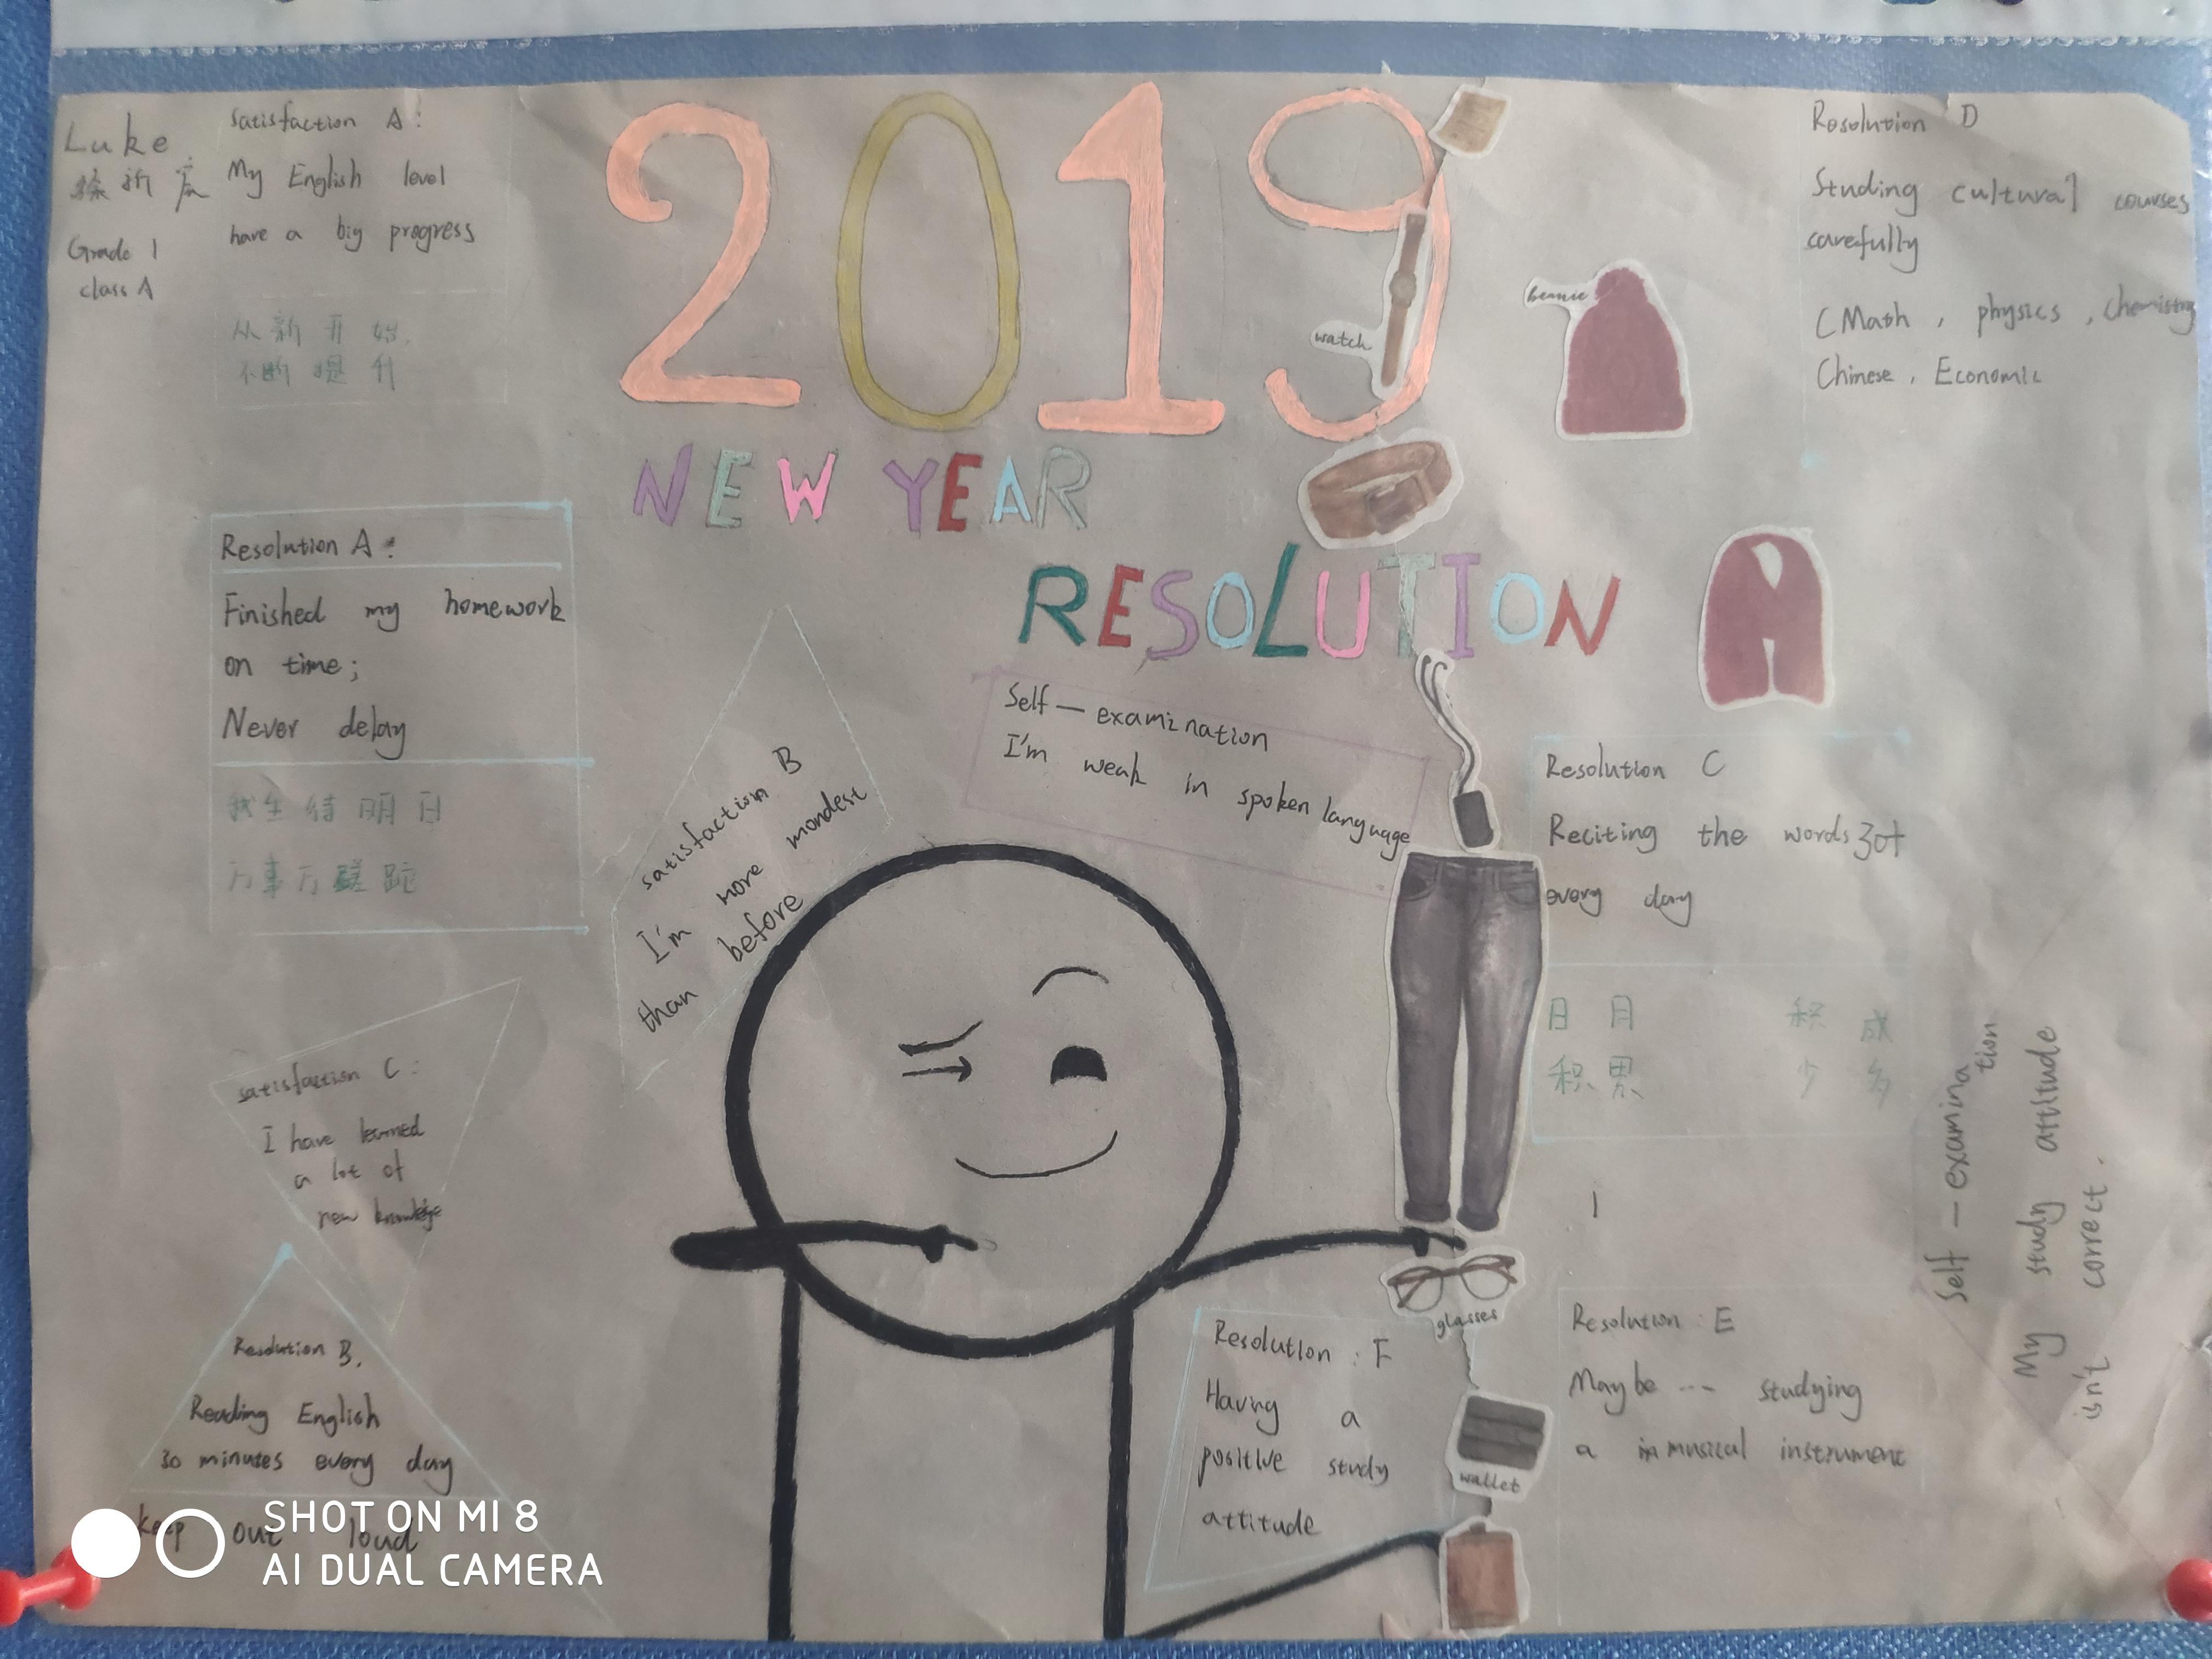 Luke
Grade 1
class A
Satisfaction A:
My English level
have a big progress
从新开始,
不断提升
2019
NEW YEAR
RESOLUTION
watch
beanie
Resolution D
Studing cultural courses
carefully
(Math , physics , chemistry
Chinese , Economic
Resolution A:
Finished my homework
on time;
Never delay
我生待明日
万事万蹉跎
satisfaction B
I'm more mondest
than before
Self — examination
I'm weak in spoken language
Resolution C
Reciting the words 30+
every day
日月 积成
积累 少多
satisfaction C:
I have learned
a lot of
new knowledge
Resolution B.
Reading English
30 minutes every day
keep out loud
glasses
Resolution : F
Having a
positive study
attitude
wallet
Resolution : E
Maybe --- studying
a musical instrument
Self — examination
My study attitude
isn't correct.
SHOT ON MI 8
AI DUAL CAMERA